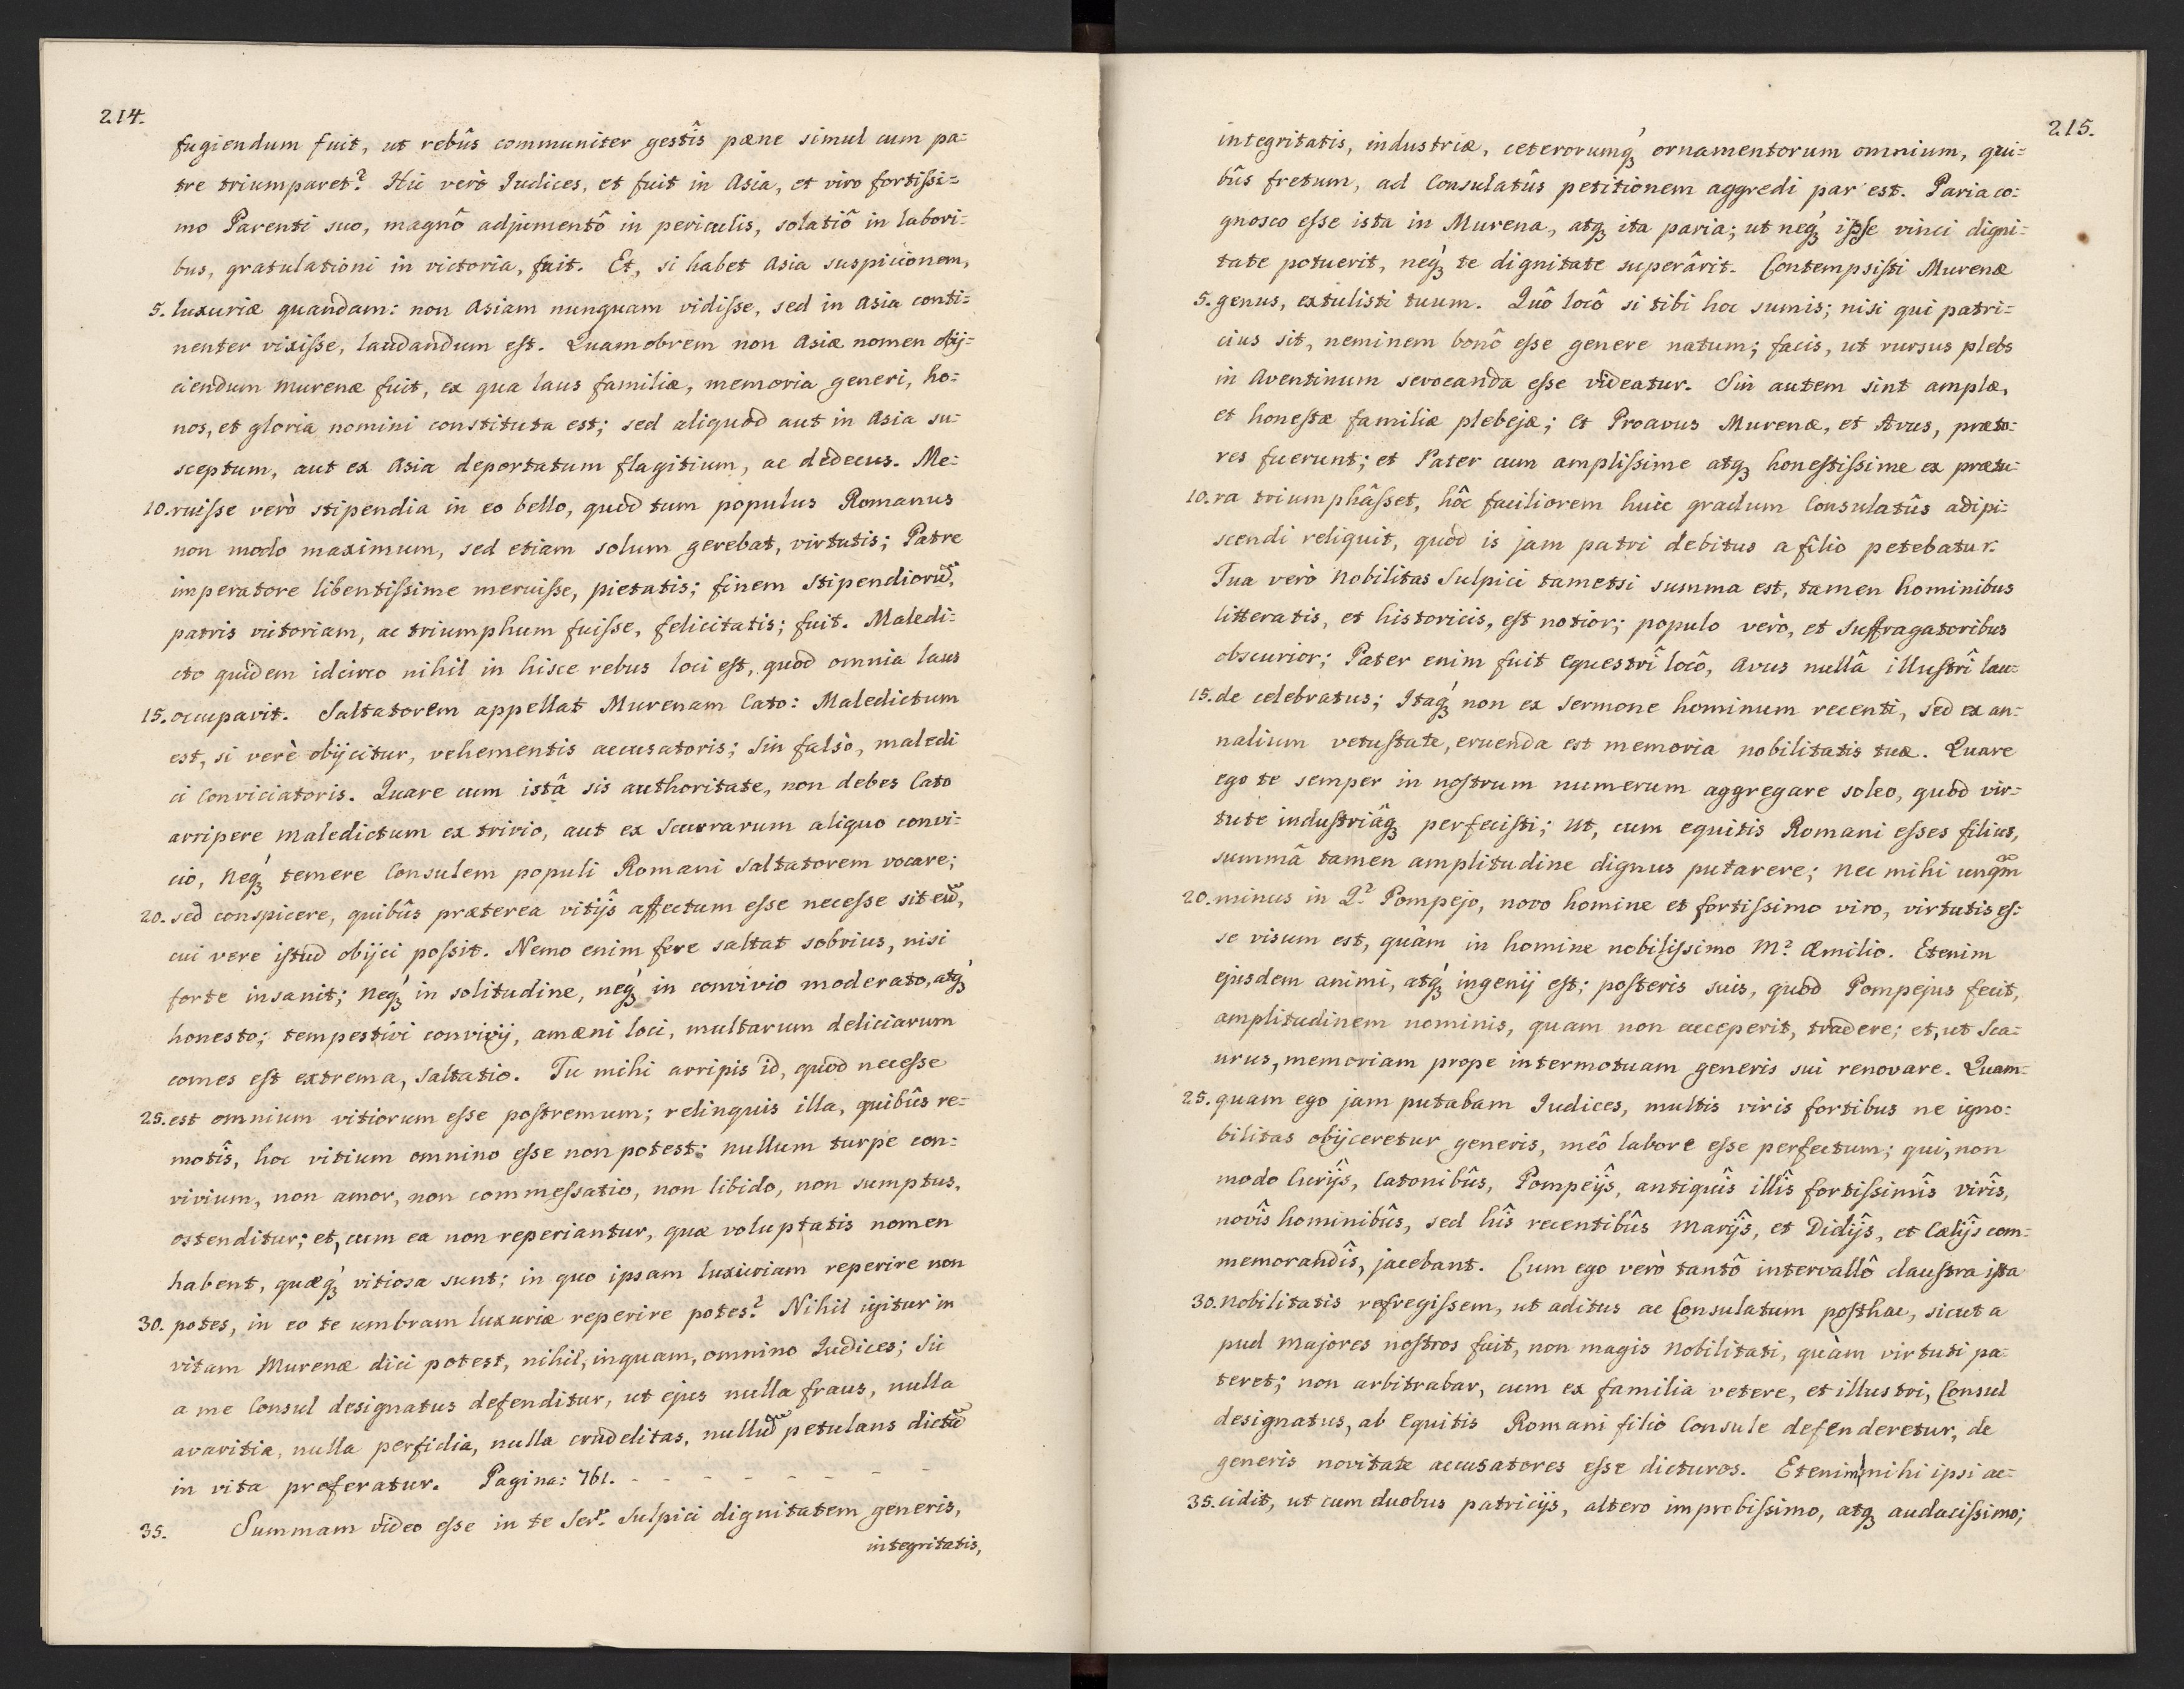 214.
fugiendum fuit, ut rebûs communiter gestîs pæne simul cum pa=
tre triumparet? Hic verò Iudices, et fuit in Asia, et viro fortissi=
mo Parenti suo, magnô adjumentô in periculis, solatiô in labori=
bus, gratulationi in victoria, fuit. Et, si habet Asia suspicionem,
5. luxuriæ quandam: non Asiam nunquam vidisse, sed in Asia conti=
nenter vixisse, laudandum est. Quamobrem non Asiæ nomen obij=
ciendum Murenæ fuit, ex qua laus familiæ, memoria generi, ho=
nos, et gloria nomini constituta est; sed aliquod aut in Asia su=
sceptum, aut ex Asia deportatum flagitium, ac dedecus. Me=
10. ruisse verò stipendia in eo bello, quod tum populus Romanus
non modo maximum, sed etiam solum gerebat, virtutis; Patre
imperatore libentissime meruisse, pietatis; finem stipendiorū,
patris victoriam, ac triumphum fuisse, felicitatis; fuit. Maledi=
cto quidem idcirco nihil in hisce rebus loci est, quod omnia laus
15. occupavit. Saltatorem appellat Murenam Cato: Maledictum
est, si verè obijcitur, vehementis accusatoris; Sin falsò, maledi
ci Conviciatoris. Quare cum istâ sis authoritate, non debes Cato
arripere maledictum ex trivio, aut ex Scurrarum aliquo convi=
cio, Neqꝫ temere Consulem populi Romani Saltatorem vocare;
20. sed conspicere, quibûs præterea vitijs affectum esse necesse sit eū,
cui vere istud obijci possit. Nemo enim fere saltat sobrius, nisi
forte insanit; Neqꝫ in solitudine, neqꝫ in convivio moderato, atqꝫ
honesto; tempestivi convivij, amæni loci, multarum deliciarum
comes est extrema, Saltatio. Tu mihi arripis id, quod necesse
25. est omnium vitiorum esse postremum; relinquis illa, quibûs re=
motîs, hoc vitium omnino esse non potest: nullum turpe con=
vivium, non amor, non commessatio, non libido, non sumptus,
ostenditur; et, cum ea non reperiantur, quæ voluptatis nomen
habent, quæqꝫ vitiosa sunt; in quo ipsam luxuriam reperire non
30. potes, in eo te umbram luxuriæ reperire potes? Nihil igitur in
vitam Murenæ dici potest, nihil, inquam, omnino Iudices; Sic
a me Consul designatus defenditur, ut ejus nulla fraus, nulla
avaritia, nulla perfidia, nulla crudelitas, nullū petulans dictū
in vita proferatur. Pagina: 761. - - - - - - - -
35. Summam video esse in te Ser. Sulpici dignitatem generis,
integritatis,
215.
integritatis, industriæ, ceterorumqꝫ ornamentorum omnium, qui=
bûs fretum, ad Consulatûs petitionem aggredi par est. Paria co=
gnosco esse ista in Murena, atqꝫ ita paria; ut neqꝫ ipse vinci digni=
tate potuerit, neqꝫ te dignitate superârit. Contempsisti Murenæ
5. genus, extulisti tuum. Quô locô si tibi hoc sumis; nisi qui patri=
cius sit, neminem bonô esse genere natum; facis, ut rursus plebs
in Aventinum sevocanda esse videatur. Sin autem sint amplæ,
et honestæ familiæ plebejæ; et Proavus Murenæ, et Avus, præto=
res fuerunt; et Pater cum amplissime atqꝫ honestissime ex prætu=
10. ra triumphâsset, hôc faciliorem huic gradum Consulatûs adipi=
scendi reliquit, quod is jam patri debitus a filio petebatur.
Tua verò Nobilitas Sulpici tametsi summa est, tamen hominibus
litteratis, et historicis, est notior; populo verò, et Suffragatoribus
obscurior; Pater enim fuit equestrî locô, Avus nullâ illustrî lau=
15. de celebratus; Itaqꝫ non ex Sermone hominum recenti, sed ex an=
nalium vetustate, eruenda est memoria nobilitatis tuæ. Quare
ego te semper in nostrum numerum aggregare soleo, quod vir=
tute industriâqꝫ perfecisti; Ut, cum equitis Romani esses filius,
summâ tamen amplitudine dignus putarere; Nec mihi unqm̄
20. minus in Q? Pompejo, novo homine et fortissimo viro, virtutis es=
se visum est, quàm in homine nobilissimo M? Æmilio. Etenim
ejusdem animi, atqꝫ ingenij est; posteris suis, quod Pompejus fecit,
amplitudinem nominis, quam non acceperit, tradere; et, ut Sca=
urus, memoriam prope intermotuam generis sui renovare. Quam=
25. quam ego jam putabam Iudices, multis viris fortibus ne igno=
bilitas obijceretur generis, meô labore esse perfectum; qui, non
modo Curijs, Catonibûs, Pompeijs, antiquîs illîs fortissimîs virîs,
novîs hominibûs, sed hîs recentibûs Marijs, et Didijs, et Cælijs com=
memorandîs, jacebant. Cum ego verò tantô intervallô claustra ista
30. Nobilitatis refregissem, ut aditus ac Consulatum posthac, sicut a
pud Majores nostros fuit, non magis Nobilitati, quàm virtuti pa=
teret; non arbitrabar, cum ex familia vetere, et illustri, Consul
designatus, ab Equitis Romani filio Consule defenderetur, de
generis novitate accusatores esse dicturos. Etenim mihi ipsi ac=
35. cidit, ut cum duobus patricijs, altero improbissimo, atqꝫ audacissimo;